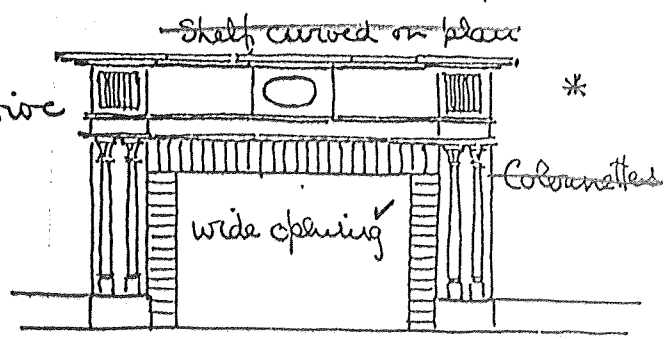 Shelf curved on plan
*
Colonnettes
wide opening ✓